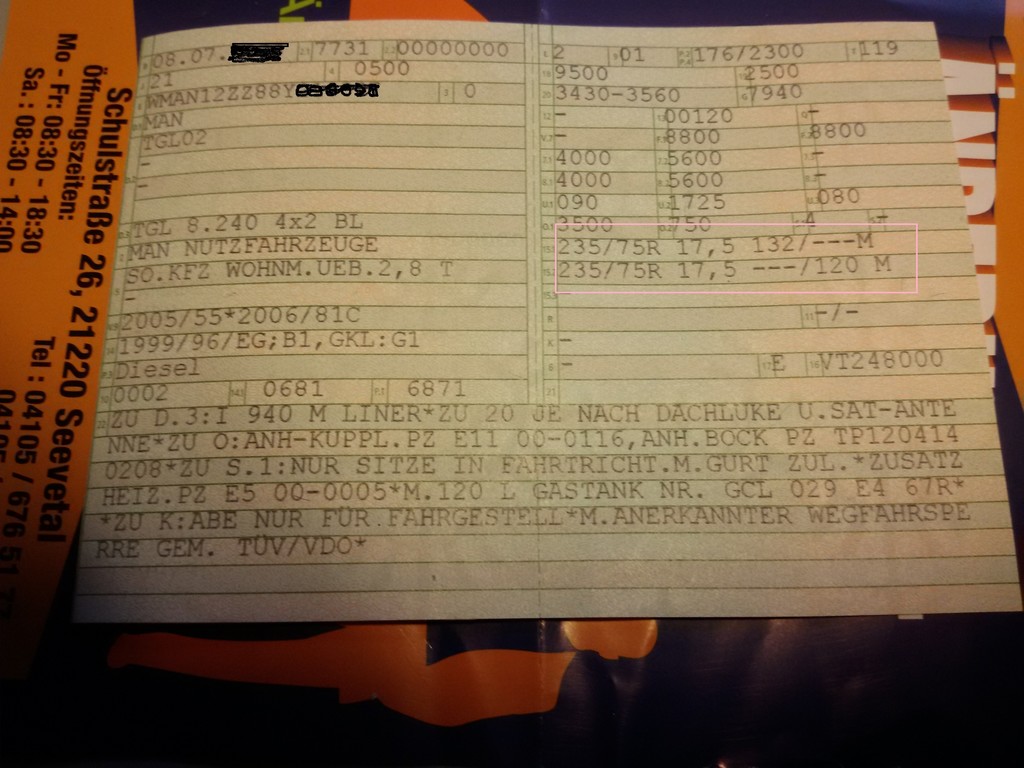 08.07. 7731 00000000
21 0500
WMAN12ZZ88Y 0
MAN
TGL02
-
-
TGL 8.240 4x2 BL
MAN NUTZFAHRZEUGE
SO.KFZ WOHNM.UEB.2,8 T
-
2005/55*2006/81C
1999/96/EG;B1,GKL:G1
Diesel
0002 0681 6871
2 01 176/2300 119
9500 2500
3430-3560 7940
- 00120 -
- 8800 8800
4000 5600 -
4000 5600 -
090 1725 080
3500 750 4 -
235/75R 17,5 132/---M
235/75R 17,5 ---/120 M
-
-/-
-
- E VT248000
ZU D.3:I 940 M LINER*ZU 20 JE NACH DACHLUKE U.SAT-ANTE
NNE*ZU O:ANH-KUPPL.PZ E11 00-0116,ANH.BOCK PZ TP120414
0208*ZU S.1:NUR SITZE IN FAHRTRICHT.M.GURT ZUL.*ZUSATZ
HEIZ.PZ E5 00-0005*M.120 L GASTANK NR. GCL 029 E4 67R*
*ZU K:ABE NUR FÜR FAHRGESTELL*M.ANERKANNTER WEGFAHRSPE
RRE GEM. TÜV/VDO*
Schulstraße 26, 21220 Seevetal
Öffnungszeiten: Tel : 04105 / 676 51 77
Mo - Fr: 08:30 - 18:30
Sa.: 08:30 - 14:00